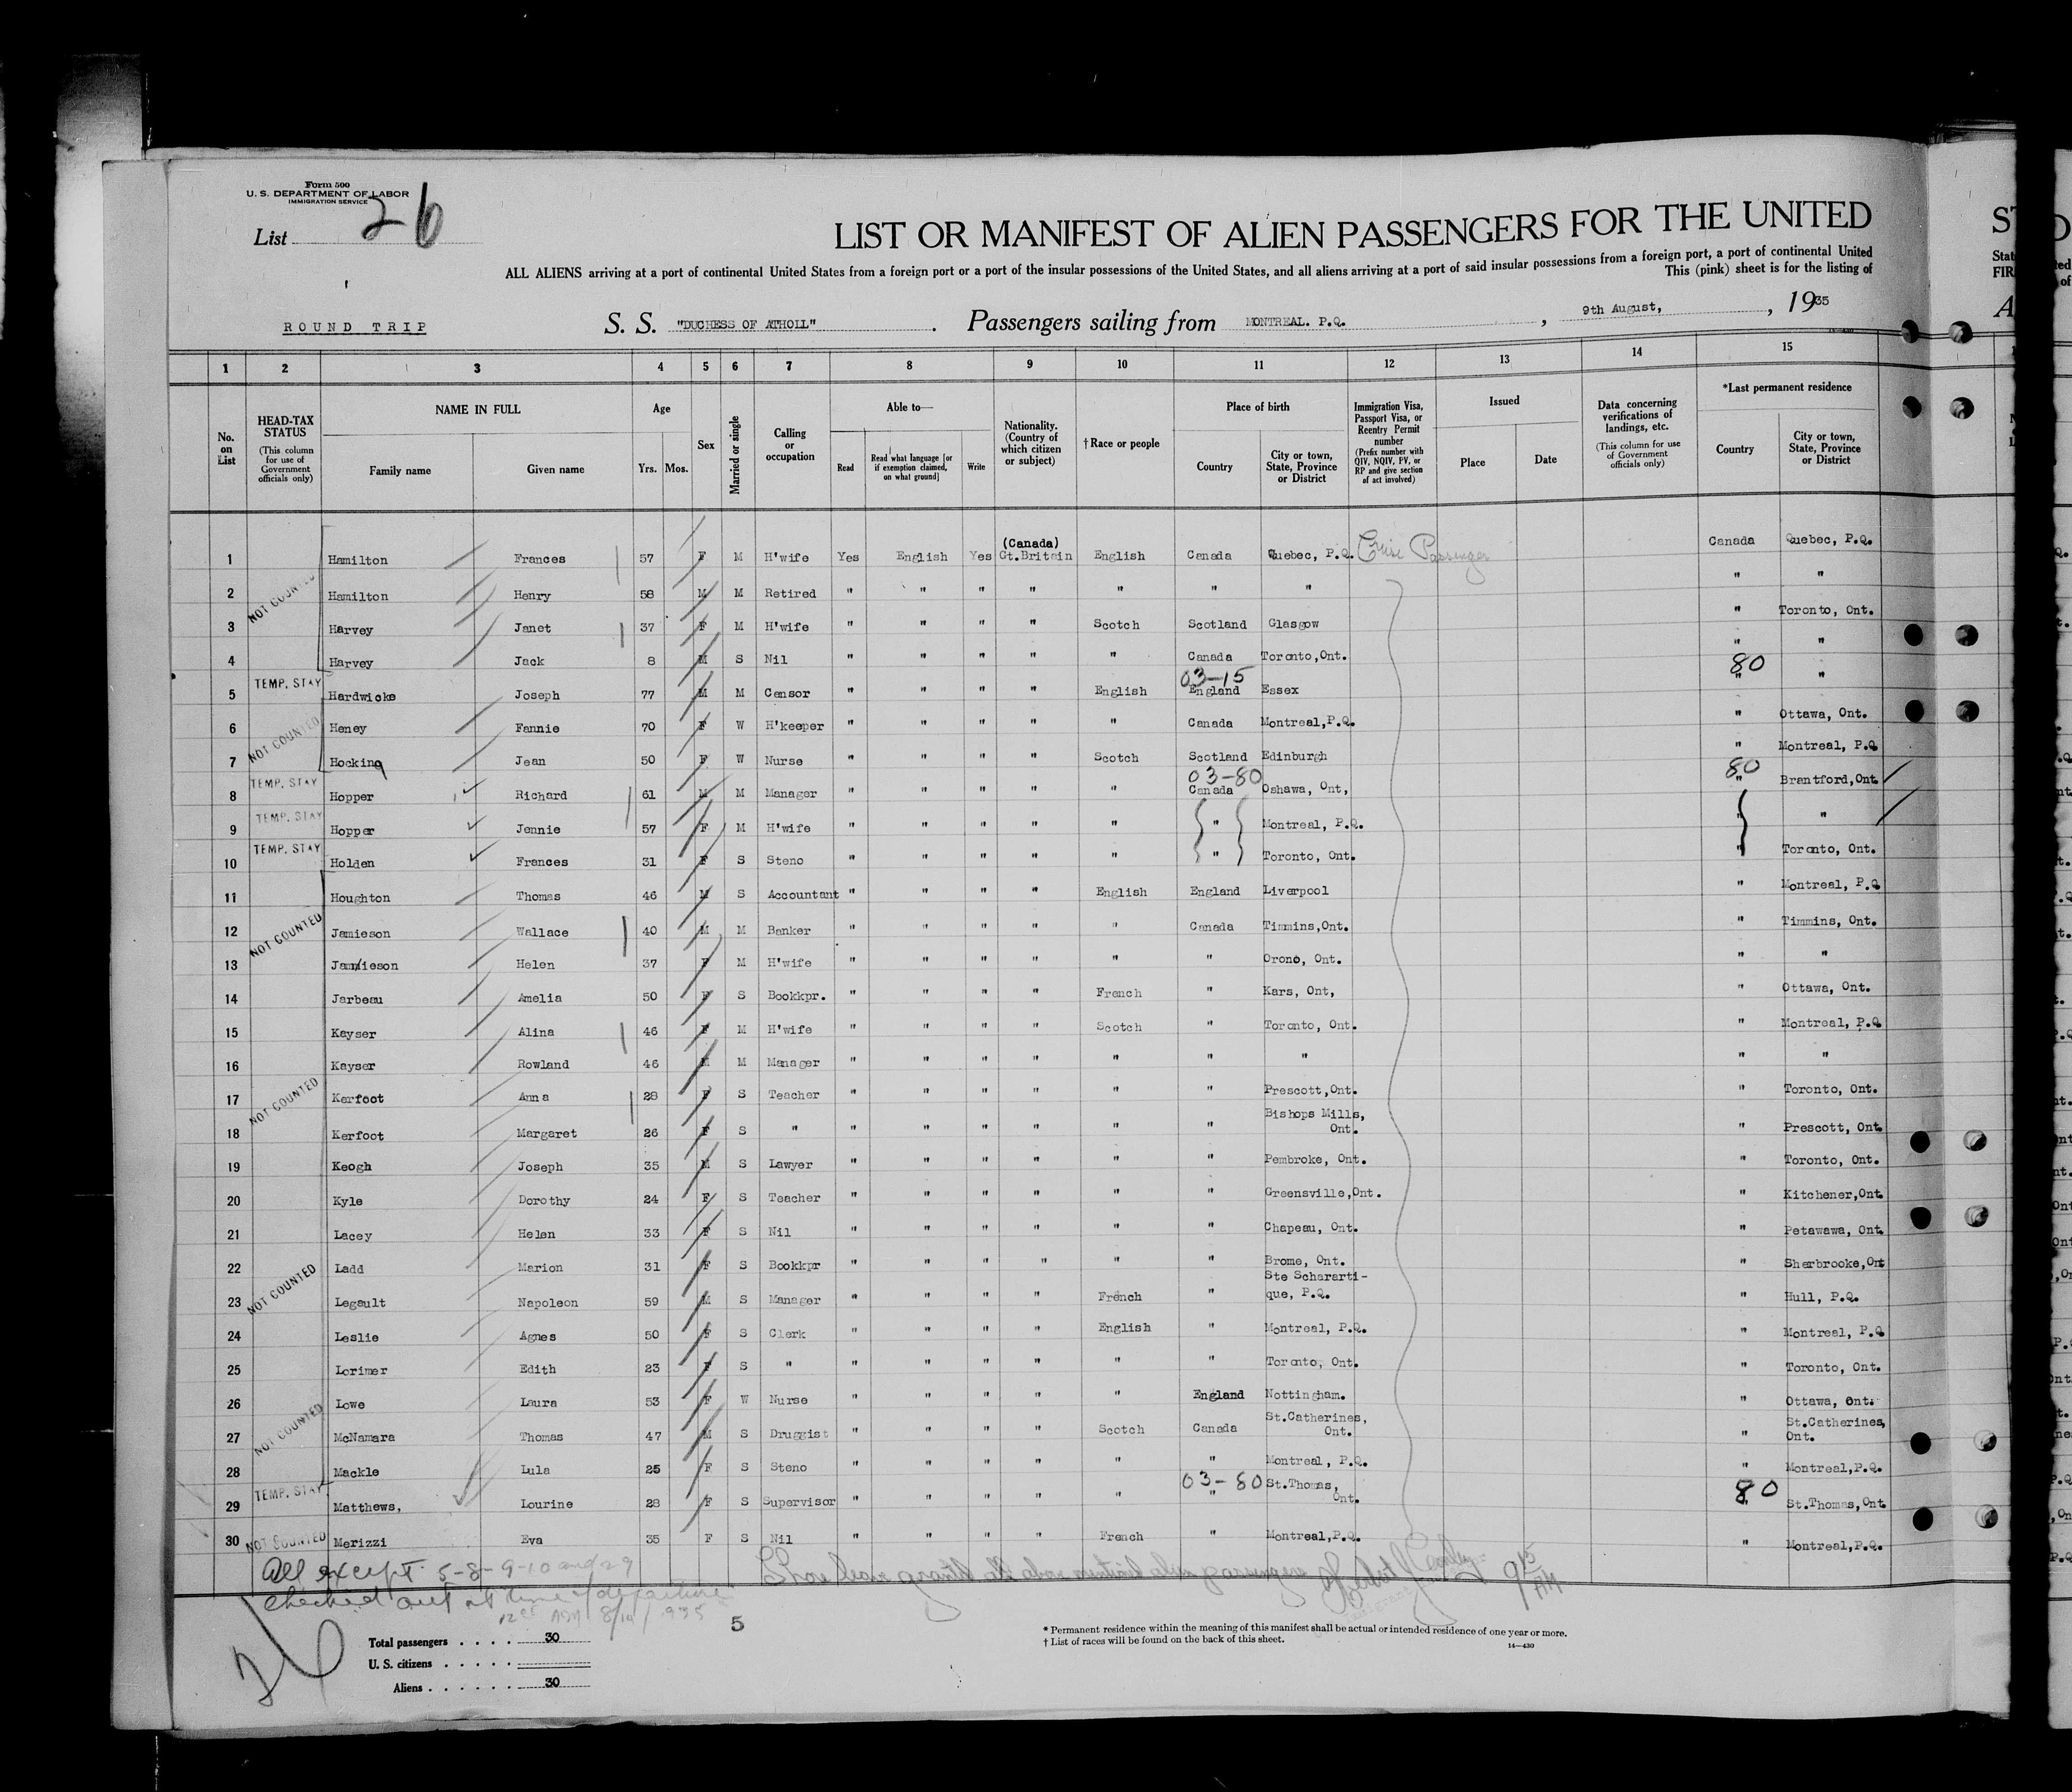 Form 500
U. S. DEPARTMENT OF LABOR
IMMIGRATION SERVICE
List 26
LIST OR MANIFEST OF ALIEN PASSENGERS FOR THE UNITED
ALL ALIENS arriving at a port of continental United States from a foreign port or a port of the insular possessions of the United States, and all aliens arriving at a port of said insular possessions from a foreign port, a port of continental United
This (pink) sheet is for the listing of
ROUND TRIP S. S. "DUCHESS OF ATHOLL" . Passengers sailing from MONTREAL. P.Q. , 9th August, , 1935
1 2 3 4 5 6 7 8 9 10 11 12 13 14 15
No. on List
HEAD-TAX STATUS (This column for use of Government officials only)
NAME IN FULL Family name Given name
Age Yrs. Mos.
Sex
Married or single
Calling or occupation
Able to— Read Read what language [or if exemption claimed, on what ground] Write
Nationality. (Country of which citizen or subject)
†Race or people
Place of birth Country City or town, State, Province or District
Immigration Visa, Passport Visa, or Reentry Permit number (Prefix number with QIV, NQIV, PV, or RP and give section of act involved)
Issued Place Date
Data concerning verifications of landings, etc. (This column for use of Government officials only)
*Last permanent residence Country City or town, State, Province or District
1 Hamilton Frances 57 F M H'wife Yes English Yes (Canada) Gt.Britain English Canada Quebec, P.Q. Cruise Passenger Canada Quebec, P.Q.
2 NOT COUNTED Hamilton Henry 58 M M Retired " " " " " " " " "
3 Harvey Janet 37 F M H'wife " " " " Scotch Scotland Glasgow " Toronto, Ont.
4 Harvey Jack 8 M S Nil " " " " " Canada Toronto,Ont. " "
5 TEMP. STAY Hardwicke Joseph 77 M M Censor " " " " English 03-15 England Essex 80 " "
6 Heney Fannie 70 F W H'keeper " " " " " Canada Montreal,P.Q. " Ottawa, Ont.
7 NOT COUNTED Hocking Jean 50 F W Nurse " " " " Scotch Scotland Edinburgh " Montreal, P.Q
8 TEMP. STAY Hopper Richard 61 M M Manager " " " " " 03-80 Canada Oshawa, Ont, 80 " Brantford,Ont
9 TEMP. STAY Hopper Jennie 57 F M H'wife " " " " " " Montreal, P.Q. " "
10 TEMP. STAY Holden Frances 31 F S Steno " " " " " " Toronto, Ont. " Toronto, Ont.
11 Houghton Thomas 46 M S Accountant " " " " English England Liverpool " Montreal, P.Q
12 NOT COUNTED Jamieson Wallace 40 M M Banker " " " " " Canada Timmins,Ont. " Timmins, Ont.
13 Jamieson Helen 37 F M H'wife " " " " " " Orono, Ont. " "
14 Jarbeau Amelia 50 F S Bookkpr. " " " " French " Kars, Ont, " Ottawa, Ont.
15 Kayser Alina 46 F M H'wife " " " " Scotch " Toronto, Ont. " Montreal, P.Q
16 Kayser Rowland 46 M M Manager " " " " " " " " "
17 NOT COUNTED Kerfoot Anna 28 F S Teacher " " " " " " Prescott,Ont. " Toronto, Ont.
18 Kerfoot Margaret 26 F S " " " " " " " Bishops Mills, Ont. " Prescott, Ont
19 Keogh Joseph 35 M S Lawyer " " " " " " Pembroke, Ont. " Toronto, Ont.
20 Kyle Dorothy 24 F S Teacher " " " " " " Greensville,Ont. " Kitchener,Ont
21 Lacey Helen 33 F S Nil " " " " " " Chapeau, Ont. " Petawawa, Ont
22 Ladd Marion 31 F S Bookkpr " " " " " " Brome, Ont. " Sherbrooke,Ont
23 NOT COUNTED Legault Napoleon 59 M S Manager " " " " French " Ste Scharartique, P.Q. " Hull, P.Q.
24 Leslie Agnes 50 F S Clerk " " " " English " Montreal, P.Q. " Montreal, P.Q
25 Lorimer Edith 23 F S " " " " " " " Toronto, Ont. " Toronto, Ont.
26 Lowe Laura 53 F W Nurse " " " " " England Nottingham. " Ottawa, Ont.
27 NOT COUNTED McNamara Thomas 47 M S Druggist " " " " Scotch Canada St.Catherines, Ont. " St.Catherines, Ont.
28 Mackle Lula 25 F S Steno " " " " " " Montreal, P.Q. " Montreal,P.Q.
29 TEMP. STAY Matthews, Lourine 28 F S Supervisor " " " " " 03-80 " St.Thomas, Ont. 80 " St.Thomas,Ont
30 NOT COUNTED Merizzi Eva 35 F S Nil " " " " French " Montreal,P.Q. " Montreal,P.Q.
All except 5-8-9-10 and 29
checked out at time of departure
8/14/1935
Shore leave granted all above mentioned alien passengers
9 15 AM
26
5
Total passengers . . . . 30
U. S. citizens . . . . .
Aliens . . . . . . 30
* Permanent residence within the meaning of this manifest shall be actual or intended residence of one year or more.
† List of races will be found on the back of this sheet.
14—430